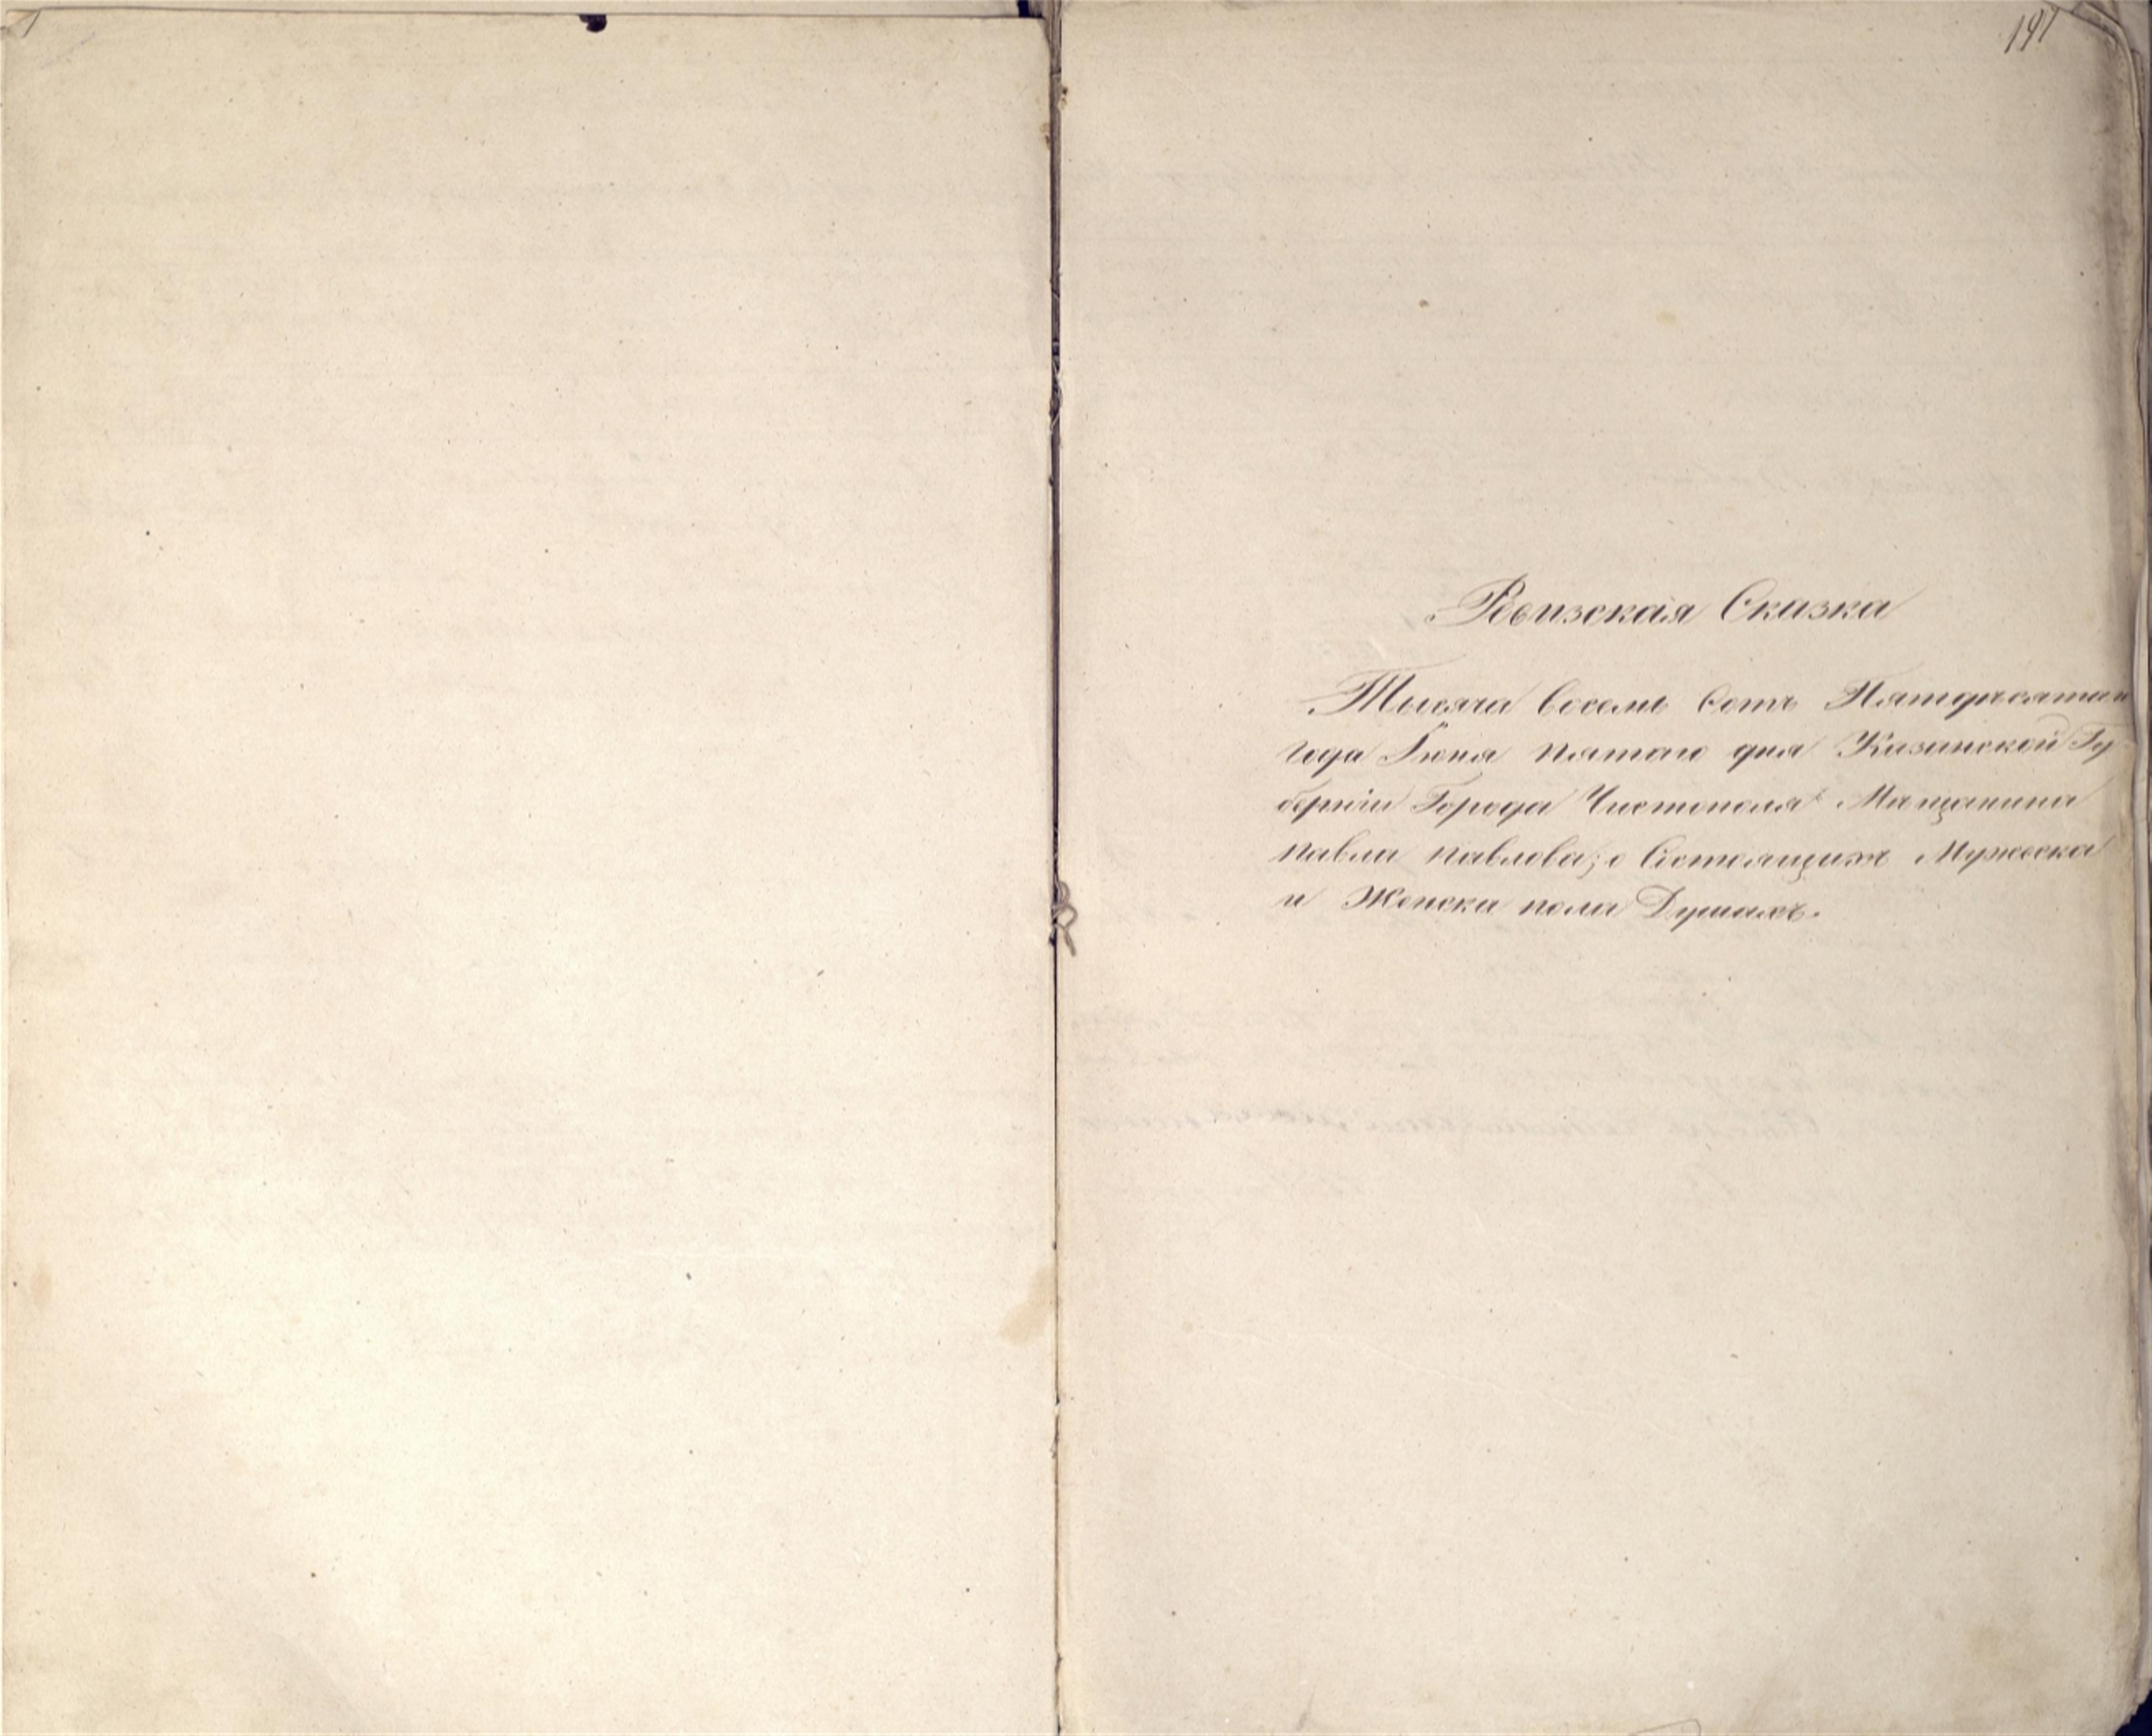 191
Ревизская Сказка
Тысяча восемь сотъ Пятдесятаго
года Іюня пятаго дня Казанской Гу-
берніи Города Чистополя Мащанина
павла павлова; о Состоящихъ Мужеска
и Женска пола Душахъ.